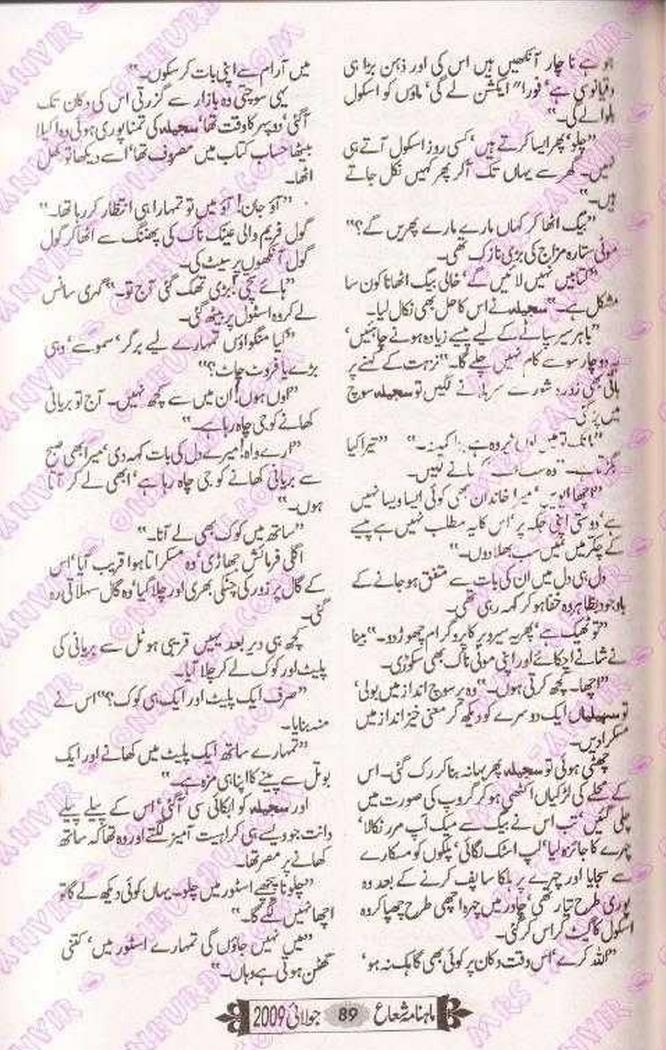 ہو ہے ناچار آنکھیں ہیں اس کی اور ذہن بڑا ہی
دقیانوسی ہے‘ فوراً ایکشن لے گی‘ ماؤں کو اسکول
بلوالے گی۔“
”چلو‘ پھر ایسا کرتے ہیں‘ کسی روز اسکول آتے ہی
نہیں۔ گھر سے یہاں تک آکر پھر کہیں نکل جاتے
ہیں۔“
”بیگ اٹھا کر کہاں مارے مارے پھریں گے؟“
موٹی ستارہ مزاج کی بڑی نازک تھی۔
”کتابیں نہیں لائیں گے‘ خالی بیگ اٹھانا کون سا
مشکل ہے۔“ سجیلہ نے اس کا حل بھی نکال لیا۔
”باہر سیر سپاٹے کے لیے پیسے زیادہ ہونے چاہئیں‘
دو چار سو سے کام نہیں چلے گا۔“ نزہت کے کہنے پر
باقی بھی زور و شور سے سر ہلانے لگیں تو سجیلہ سوچ
میں پڑ گئی۔
”تیرا کیا
”اچھا میرا خاندان بھی کوئی ایسا ویسا نہیں
ہے‘ دوستی اپنی جگہ پر‘ اس کا یہ مطلب نہیں ہے پیسے
کے چکر میں میں سب بھلا دوں۔“
دل ہی دل میں ان کی بات سے متفق ہو جانے کے
باوجود بظاہر وہ خفا ہو کر کہہ رہی تھی۔
”تو ٹھیک ہے‘ پھر یہ سیر ویر کا پروگرام چھوڑ دو۔“ بینا
نے شانے اچکائے اور اپنی موٹی ناک بھی سکوڑی۔
”اچھا۔ کچھ کرتی ہوں۔“ وہ پر سوچ انداز میں بولی‘
تو سہیلیاں ایک دوسرے کو دیکھ کر معنی خیز انداز میں
مسکرادیں۔
چھٹی ہوئی تو سجیلہ پھر بہانہ بنا کر رک گئی۔ اس
کے محلے کی لڑکیاں اکٹھی ہو کر گروپ کی صورت میں
چلی گئیں‘ تب اس نے بیگ سے میک اپ مرر نکالا‘
چہرے کا جائزہ لیا‘ لپ اسٹک لگائی‘ پلکوں کو مسکارے
سے سجایا اور چہرے پر ہلکا سا پف کرنے کے بعد وہ
پوری طرح تیار تھی‘ چادر میں چہرہ اچھی طرح چھپا کر وہ
اسکول کا گیٹ کراس کر گئی۔
”اللہ کرے‘ اس وقت دکان پر کوئی بھی گاہک نہ ہو‘
میں آرام سے اپنی بات کر سکوں۔“
یہی سوچتی وہ بازار سے گزرتی اس کی دکان تک
آگئی‘ دوپہر کا وقت تھا‘ سجیلہ کی تمنا پوری ہوئی وہ اکیلا
بیٹھا حساب کتاب میں مصروف تھا‘ اسے دیکھا تو کھل
اٹھا۔
”آؤ جان! آؤ میں تو تمہارا ہی انتظار کر رہا تھا۔“
گول فریم والی عینک ناک کی پھننگ سے اٹھا کر گول
گول آنکھوں پر سیٹ کی۔
”ہائے سچی! بڑی تھک گئی آج تو۔“ گہری سانس
لے کر وہ اسٹول پر بیٹھ گئی۔
”کیا منگواؤں تمہارے لیے برگر‘ سموسے‘ دہی
بڑے یا فروٹ چاٹ؟“
”اوں ہوں! ان میں سے کچھ نہیں۔ آج تو بریانی
کھانے کو جی چاہ رہا ہے۔“
”ارے واہ! میرے دل کی بات کہہ دی‘ میرا بھی صبح
سے بریانی کھانے کو جی چاہ رہا ہے‘ ابھی لے کر آتا
ہوں۔“
”ساتھ میں کوک بھی لے آنا۔“
اگلی فرمائش جھاڑی‘ وہ مسکراتا ہوا قریب آیا‘ اس
کے گال پر زور کی چٹکی بھری اور چلا گیا‘ وہ گال سہلاتی رہ
گئی۔
کچھ ہی دیر بعد یہیں قریبی ہوٹل سے بریانی کی
پلیٹ اور کوک لے کر چلا آیا۔
”صرف ایک پلیٹ اور ایک ہی کوک؟“ اس نے
منہ بنایا۔
”تمہارے ساتھ ایک پلیٹ میں کھانے اور ایک
بوتل سے پینے کا اپنا ہی مزہ ہے۔“
اور سجیلہ کو ابکائی سی آگئی‘ اس کے پیلے پیلے
دانت جو ویسے ہی کراہیت آمیز لگتے اور وہ تھا کہ ساتھ
کھانے پر مصر تھا۔
”چلو نا پیچھے اسٹور میں چلو۔ یہاں کوئی دیکھ لے گا تو
اچھا نہیں لگے گا۔“
”میں نہیں جاؤں گی تمہارے اسٹور میں‘ کتنی
گھٹن ہوتی ہے وہاں۔“
ماہنامہ شعاع 89 جولائی 2009